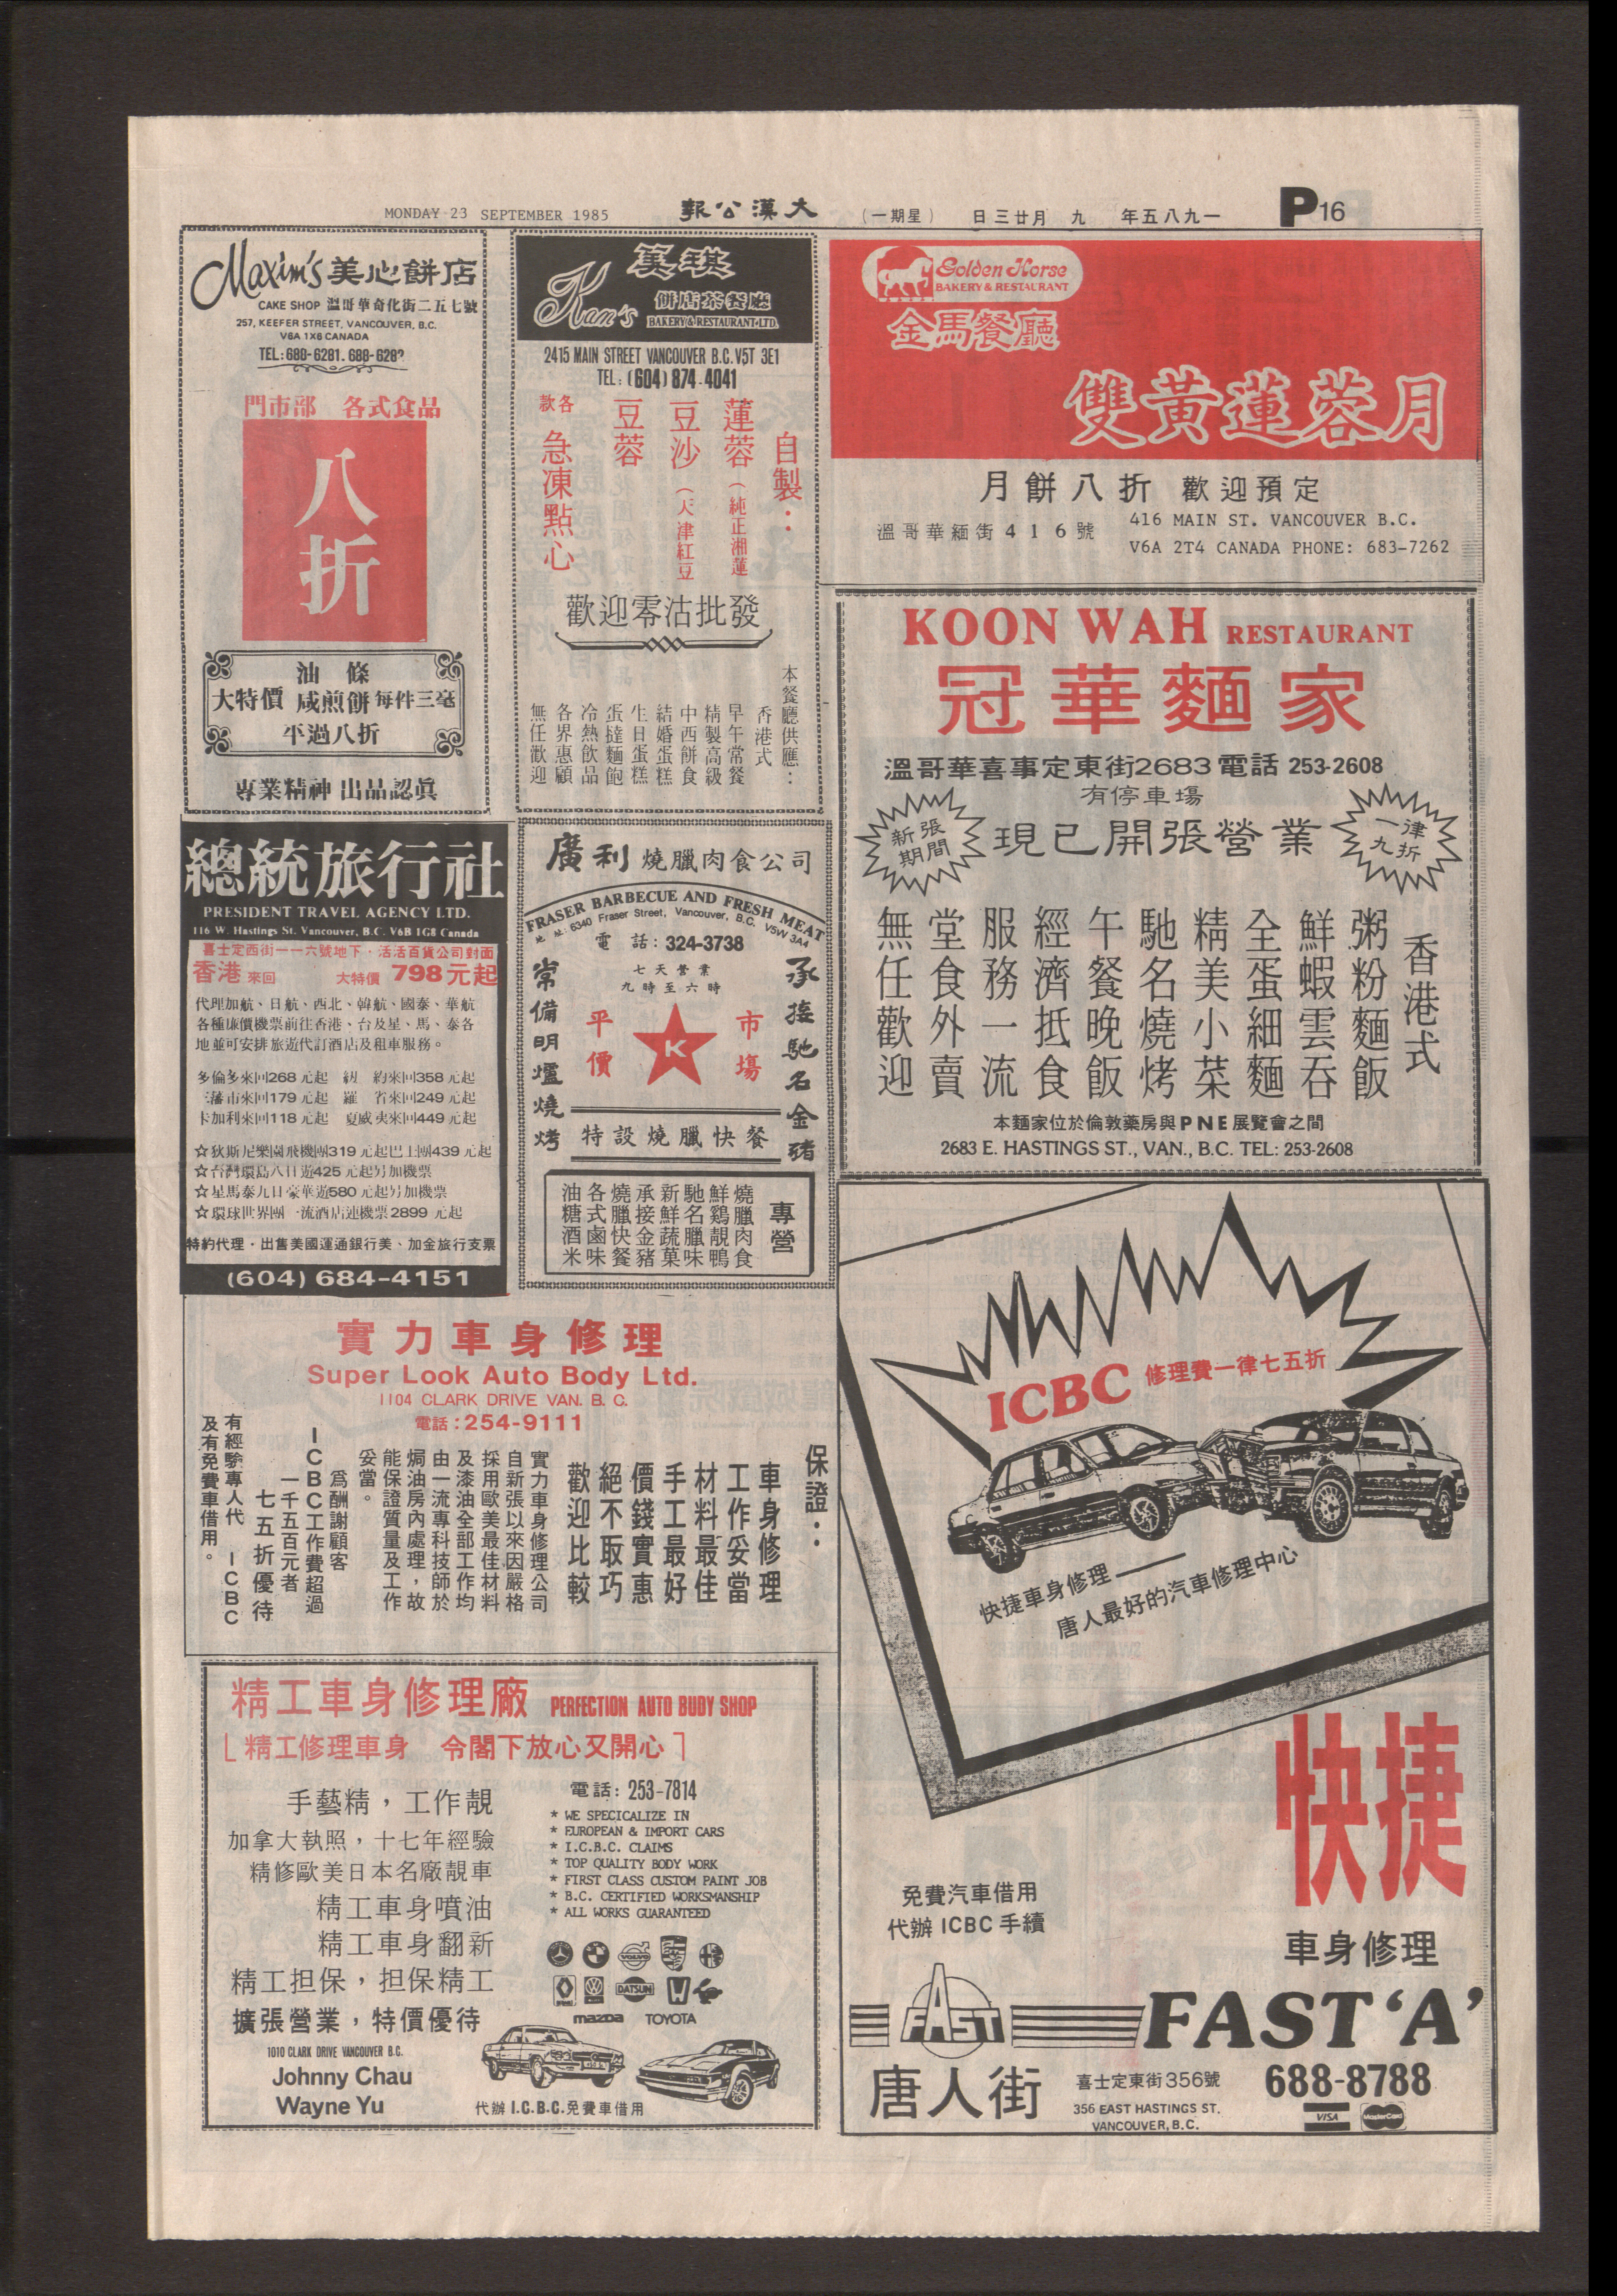 MONDAY 23 SEPTEMBER 1985
報公漢大
(一期星)
日三廿月九年五八九一
P16
Maxim's 美心餅店
CAKE SHOP 溫哥華奇化街二五七號
257, KEEFER STREET, VANCOUVER, B.C.
V6A 1X6 CANADA
TEL:688-6281. 688-6282
門市部 各式食品
八折
油條
大特價 咸煎餅 每件三毫
平過八折
專業精神 出品認眞
Kan's
餅店茶餐廳
BAKERY & RESTAURANT LTD.
2415 MAIN STREET VANCOUVER B.C. V5T 3E1
TEL: (604) 874-4041
自製：
蓮蓉（純正湘蓮
豆沙（天津紅豆
豆蓉
各款
急凍點心
歡迎零沽批發
本餐廳供應：
香港式
早午常餐
精製高級
中西餅食
結婚蛋糕
生日蛋糕
蛋撻麵飽
冷熱飲品
各界惠顧
無任歡迎
Golden Horse
BAKERY & RESTAURANT
金馬餐廳
雙黃蓮蓉月
月餅八折 歡迎預定
溫哥華緬街416號
416 MAIN ST. VANCOUVER B.C.
V6A 2T4 CANADA PHONE: 683-7262
KOON WAH RESTAURANT
冠華麵家
溫哥華喜事定東街2683電話 253-2608
有停車場
新張期間
現已開張營業
一律九折
香港式
粥粉麵飯
鮮蝦雲吞
全蛋細麵
精美小菜
馳名燒烤
午餐晚飯
經濟抵食
服務一流
堂食外賣
無任歡迎
本麵家位於倫敦藥房與PNE展覽會之間
2683 E. HASTINGS ST., VAN., B.C. TEL: 253-2608
總統旅行社
PRESIDENT TRAVEL AGENCY LTD.
116 W. Hastings St. Vancouver, B.C. V6B 1G8 Canada
喜士定西街一一六號地下・活活百貨公司對面
香港來回 大特價 798元起
代理加航、日航、西北、韓航、國泰、華航
各種廉價機票前往香港、台及星、馬、泰各
地並可安排旅遊代訂酒店及租車服務。
多倫多來回268元起 紐約來回358元起
三藩市來回179元起 羅省來回249元起
卡加利來回118元起 夏威夷來回449元起
☆狄斯尼樂園飛機團319元起巴士團439元起
☆台灣環島八日遊425元起另加機票
☆星馬泰九日豪華遊580元起另加機票
☆環球世界團一流酒店連機票2899元起
特約代理・出售美國運通銀行美、加金旅行支票
(604) 684-4151
廣利燒臘肉食公司
FRASER BARBECUE AND FRESH MEAT
地址: 6340 Fraser Street, Vancouver, B.C. V5W 3A4
電話: 324-3738
七天營業
九時至六時
承接馳名金豬
常備明爐燒烤
平價
K
市場
特設燒臘快餐
專營
燒臘肉食
鮮鷄靚鴨
馳名臘味
新鮮蔬菓
承接金豬
燒臘快餐
各式鹵味
油糖酒米
ICBC 修理費一律七五折
快捷車身修理——
唐人最好的汽車修理中心
快捷
免費汽車借用
代辦ICBC手續
車身修理
FAST
FAST 'A'
唐人街
喜士定東街356號
356 EAST HASTINGS ST.
VANCOUVER, B.C.
688-8788
VISA
MasterCard
實力車身修理
Super Look Auto Body Ltd.
1104 CLARK DRIVE VAN. B. C.
電話:254-9111
保證：
車身修理
工作妥當
材料最佳
手工最好
價錢實惠
絕不取巧
歡迎比較
實力車身修理公司
自新張以來因嚴格
採用歐美最佳材料
及漆油全部工作均
由一流專科技師於
焗油房內處理，故
能保證質量及工作
妥當。
爲酬謝顧客
ICBC工作費超過
一千五百元者
七五折優待
有經驗專人代 ICBC
及有免費車借用。
精工車身修理廠 PERFECTION AUTO BUDY SHOP
精工修理車身 令閣下放心又開心
手藝精，工作靚
加拿大執照，十七年經驗
精修歐美日本名廠靚車
精工車身噴油
精工車身翻新
精工担保，担保精工
擴張營業，特價優待
1010 CLARK DRIVE VANCOUVER B.C.
Johnny Chau
Wayne Yu
電話: 253-7814
* WE SPECICALIZE IN
* EUROPEAN & IMPORT CARS
* I.C.B.C. CLAIMS
* TOP QUALITY BODY WORK
* FIRST CLASS CUSTOM PAINT JOB
* B.C. CERTIFIED WORKSMANSHIP
* ALL WORKS GUARANTEED
VOLVO
DATSUN
mazda TOYOTA
代辦I.C.B.C.免費車借用